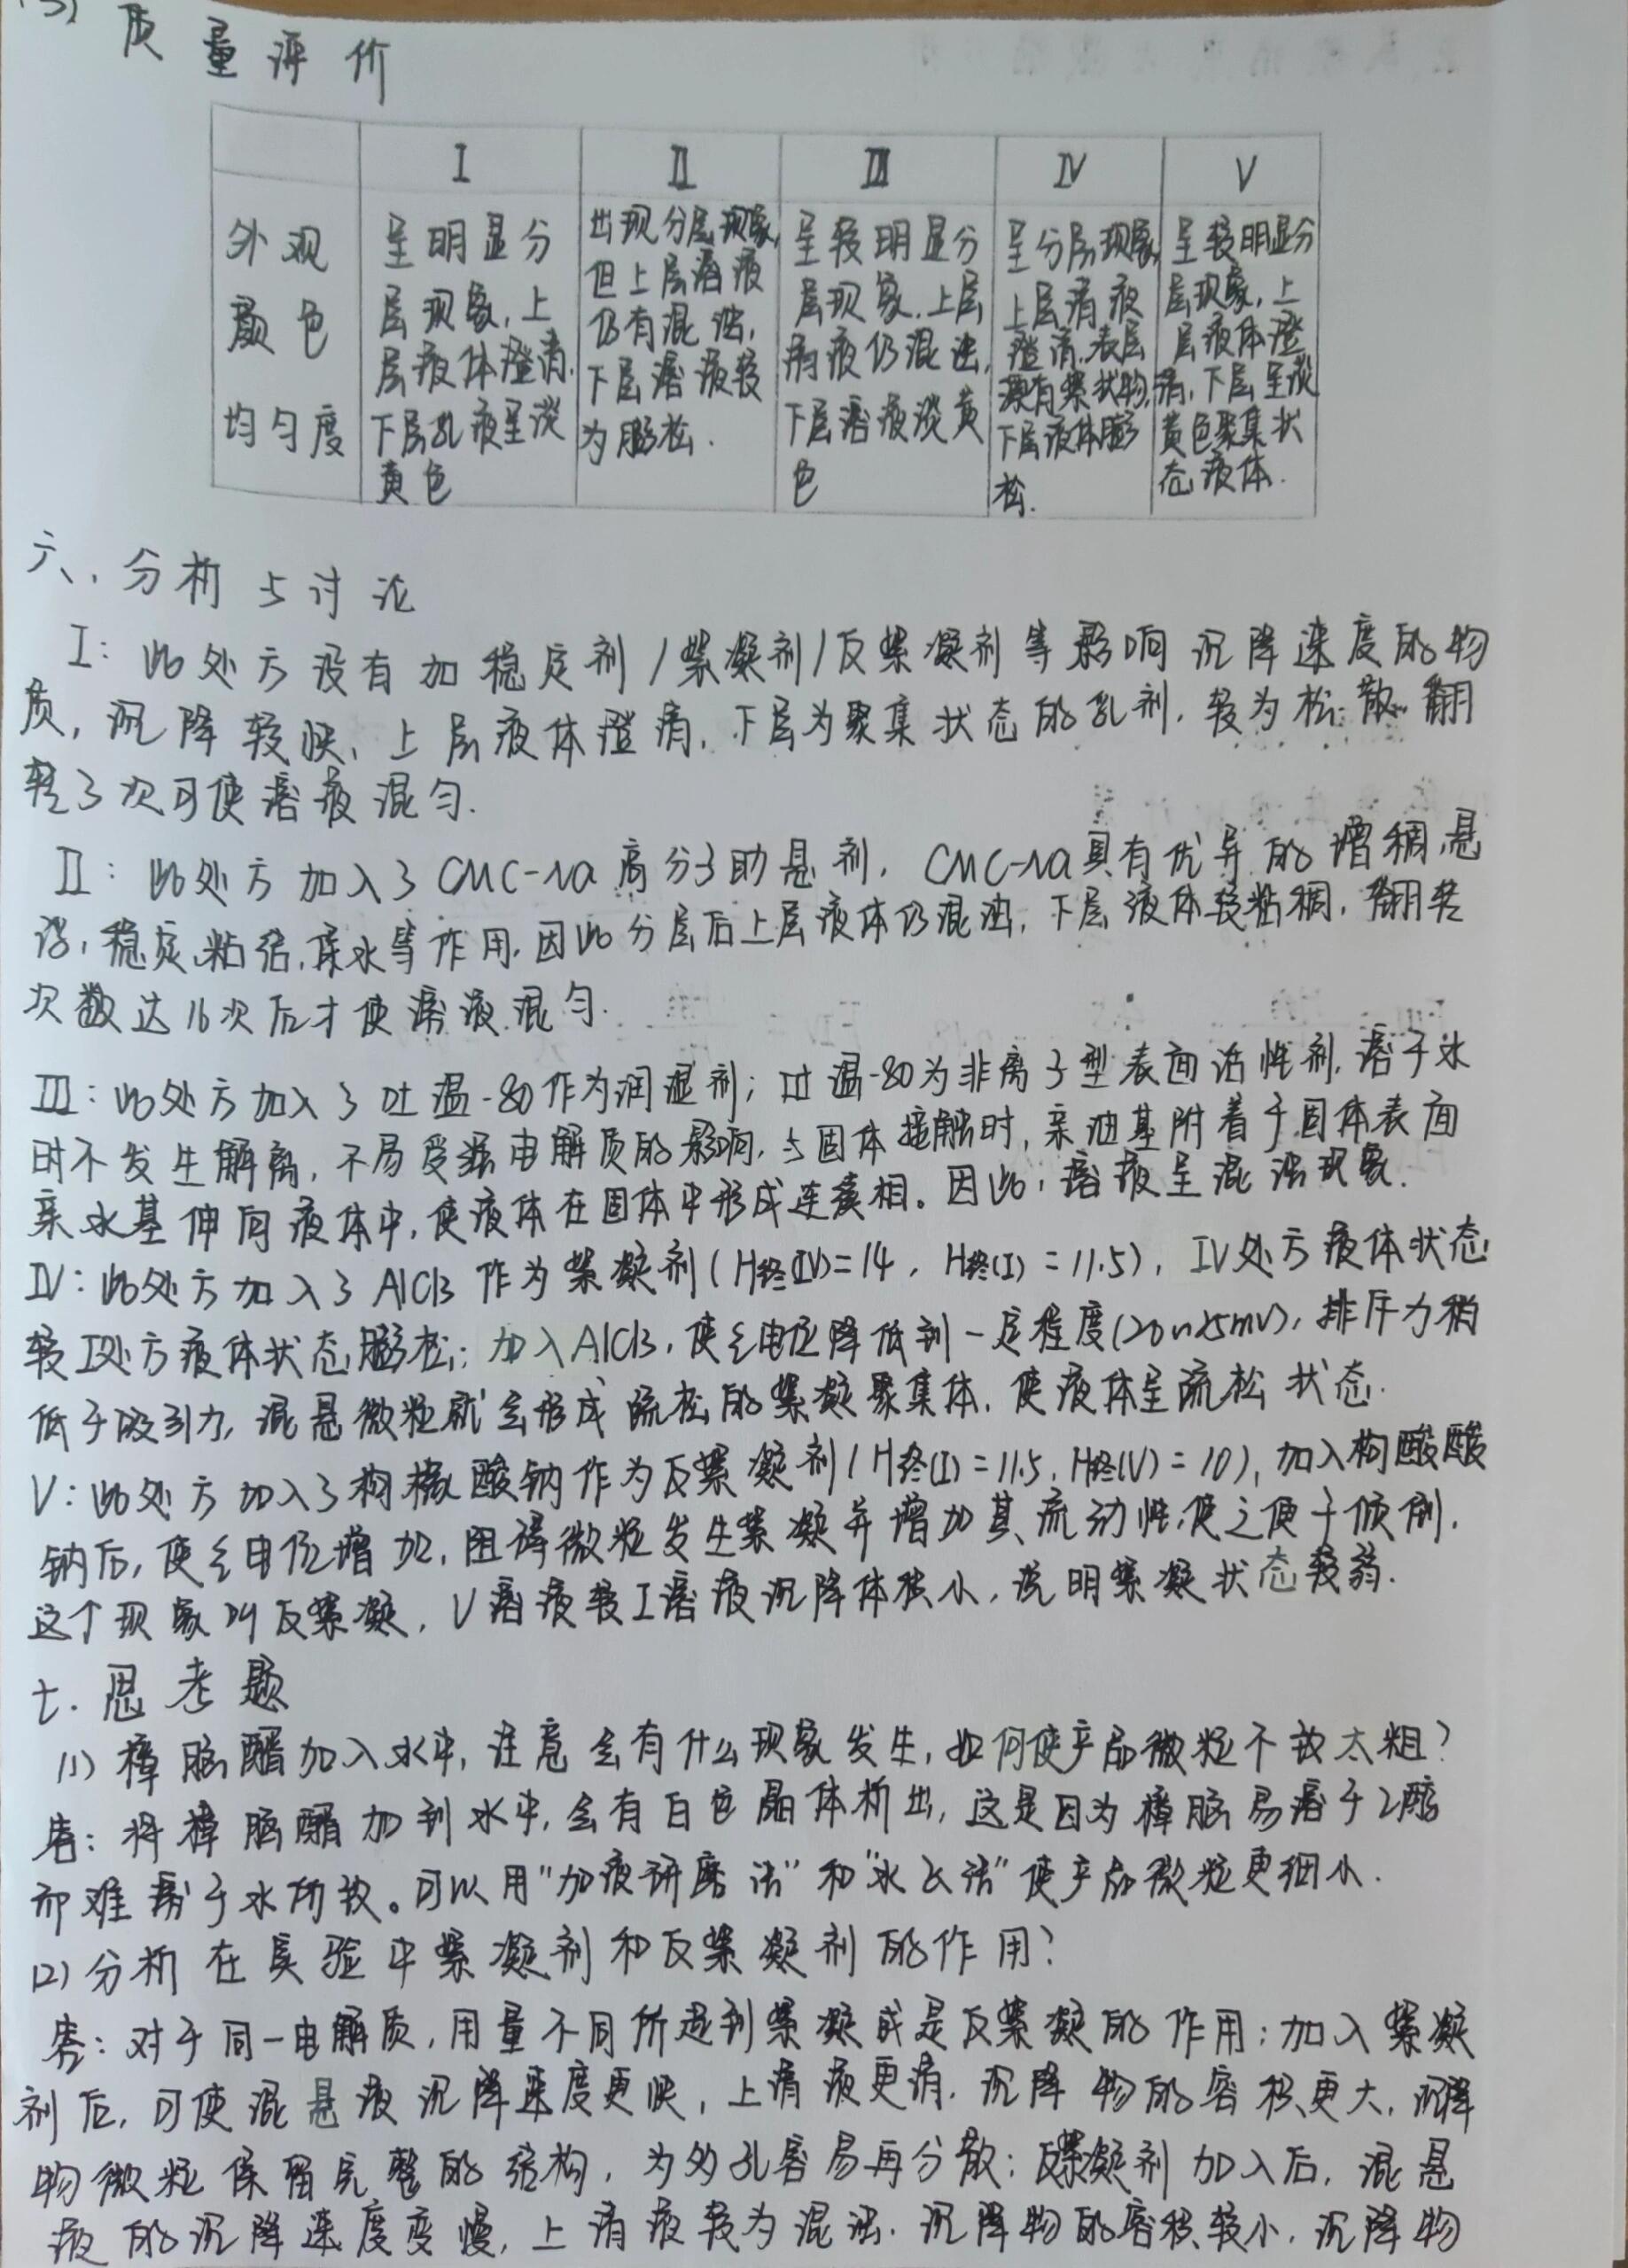 (3) 质量评价
I II III IV V
外观 颜色 均匀度
呈明显分
层现象,上
层液体澄清.
下层乳液呈淡
黄色
出现分层现象,
但上层溶液
仍有混浊,
下层溶液较
为膨松.
呈较明显分
层现象.上层
清液仍混浊,
下层溶液淡黄
色
呈分层现象,
上层清液
澄清.表层
漂有絮状物,
下层液体膨
松.
呈较明显分
层现象,上
层液体澄
清,下层呈淡
黄色聚集状
态液体.
六、分析与讨论
I: 此处方没有加稳定剂/絮凝剂/反絮凝剂等影响沉降速度的物
质,沉降较快、上层液体澄清,下层为聚集状态的乳剂,较为松散.翻
转3次可使溶液混匀.
II: 此处方加入了CMC-Na高分子助悬剂, CMC-Na具有优异的增稠,悬
浮,稳定,粘结,保水等作用.因此分层后上层液体仍混浊,下层液体较粘稠,翻转
次数达16次后才使溶液混匀.
III: 此处方加入了吐温-80作为润湿剂;吐温-80为非离子型表面活性剂.溶于水
时不发生解离,不易受强电解质的影响.与固体接触时,亲油基附着于固体表面
亲水基伸向液体中,使液体在固体中形成连续相。因此,溶液呈混浊现象.
IV: 此处方加入了AlCl3作为絮凝剂(H终(IV)=14, H终(I)=11.5), IV处方液体状态
较I处方液体状态膨松;加入AlCl3,使ξ电位降低到一定程度(20~25mV),排斥力稍
低于吸引力,混悬微粒就会形成疏松的絮凝聚集体.使液体呈疏松状态.
V: 此处方加入了枸橼酸钠作为反絮凝剂(H终(I)=11.5, H终(V)=10),加入枸酸酸
钠后,使ξ电位增加,阻碍微粒发生絮凝并增加其流动性,使之便于倾倒.
这个现象叫反絮凝,V溶液较I溶液沉降体积小,说明絮凝状态较弱.
七.思考题
(1) 樟脑醑加入水中,注意会有什么现象发生,如何使产品微粒不致太粗?
答:将樟脑醑加到水中,会有白色晶体析出,这是因为樟脑易溶于乙醇
而难溶于水所致。可以用"加液研磨法"和"水飞法"使产品微粒更细小.
(2) 分析在实验中絮凝剂和反絮凝剂的作用?
答:对于同一电解质,用量不同所起到絮凝或是反絮凝的作用;加入絮凝
剂后,可使混悬液沉降速度更快,上清液更清.沉降物的容积更大,沉降
物微粒保留完整的结构,为多孔容易再分散;反絮凝剂加入后,混悬
液的沉降速度变慢,上清液较为混浊.沉降物的容积较小,沉降物